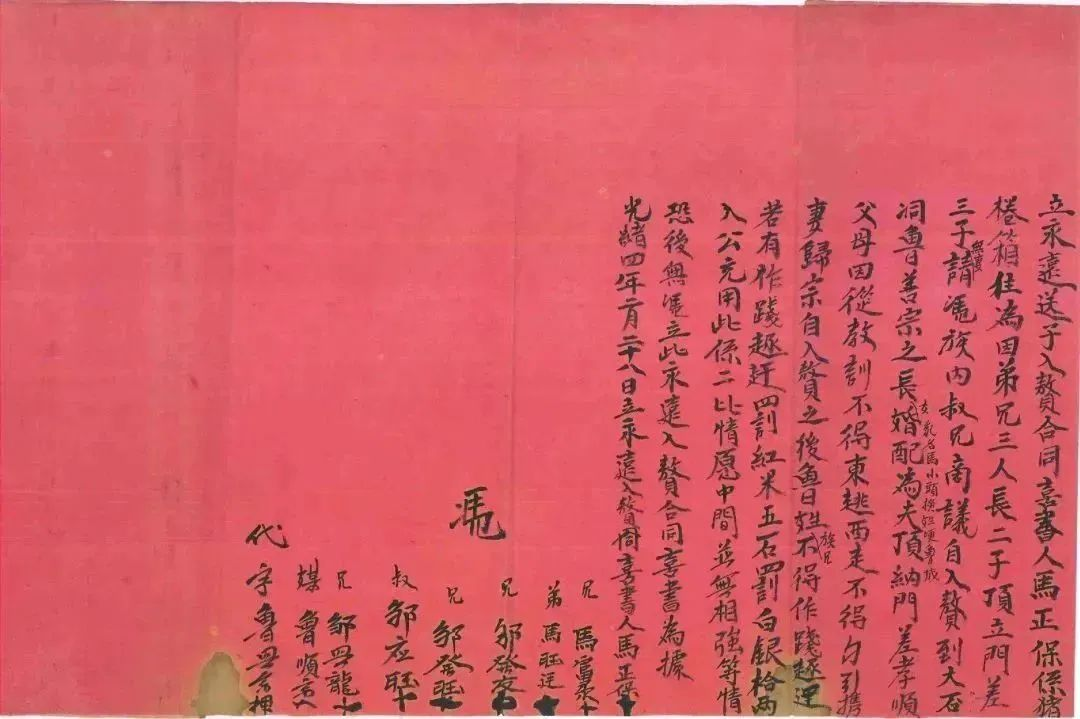 立永遠送子入贅合同喜書人馬正保係猪
槽箱住為因弟兄三人長二子頂立門差
三子請憑族内叔兄商議自入贅到大石
無妻
洞魯善宗之長婚配為夫頂納門差孝順
女乳名馬小頭
父母因從教訓不得東逃西走不得勾引携
妻歸宗自入贅之後魯姓不得作踐趕逐
族兄
若有作踐趕逐四罰紅米五石四罰白銀拾两
入公充用此係二比情愿中間並無相強等情
恐後無憑立此永遠入贅合同喜書為據
光緒四年二月二十八日立永遠入贅合同喜書人馬正保十
兄 馬富
弟 馬旺廷十
憑
兄 邹發
兄 邹發旺
叔 邹應旺十
兄 邹興龍十
媒 魯順
代字魯興 押